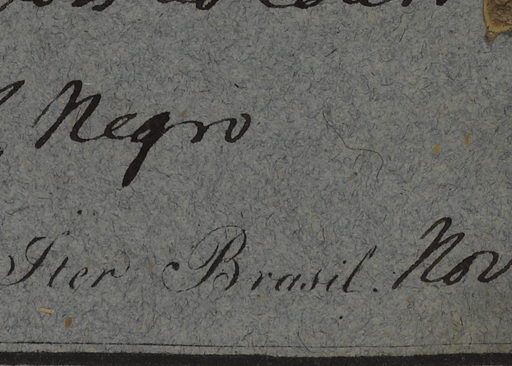 Negro
Iter Brasil. Nov